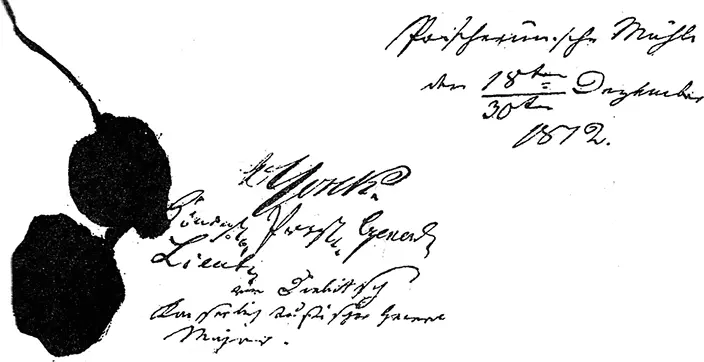 Poscherun.sche Mühle
den 18ten Dezember
30ten
1812.
v. Yorck.
Königl. Preuß. General
Lieut.
von Diebitsch
Kaiserlich russischer General
Major.